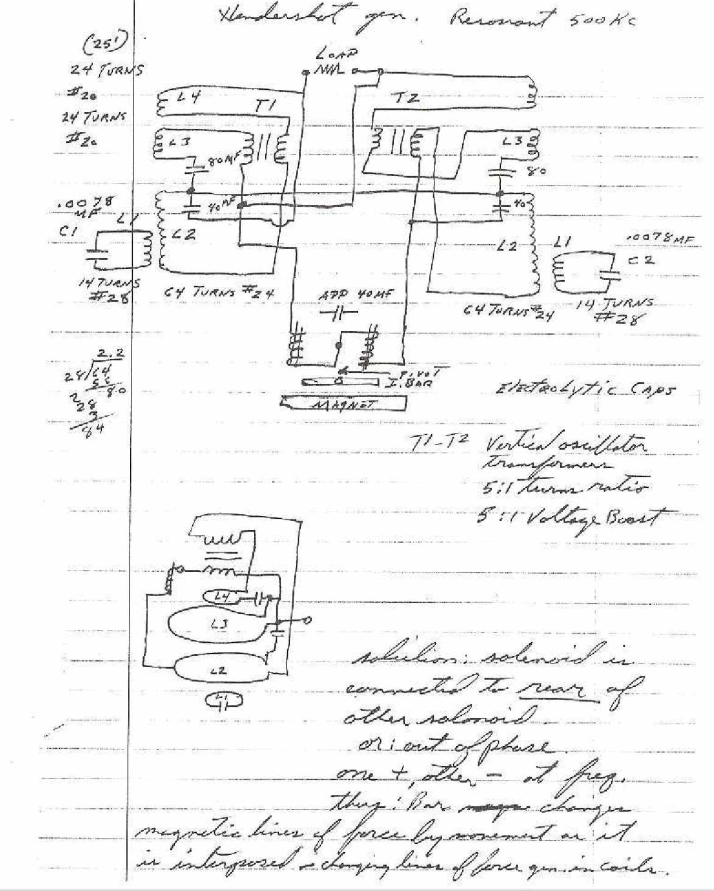 Hendershot gen. Resonant 500 KC
(25')
24 TURNS
#20
24 TURNS
#20
LOAD
L4
T1
T2
L3
80MF
L3
80
40MF
40
.0078
MF
C1
L1
L2
14 TURNS
#28
64 TURNS #24
L2
L1
.0078MF
C2
64 TURNS #24
14 TURNS
#28
APP 40MF
PIVOT
I. BAR
MAGNET
2.2
28/64
56
80
28
3
84
ELECTROLYTIC CAPS
T1-T2 Vertical oscillator
transformers
5:1 turns ratio
5:1 Voltage Boost
L4
L3
L2
L1
solution: solenoid is
connected to rear of
other solonoid
or: out of phase
one +, other - at freq.
thus: Bar changes
magnetic lines of force by movement as it
is interposed changing lines of force gen. in coils.